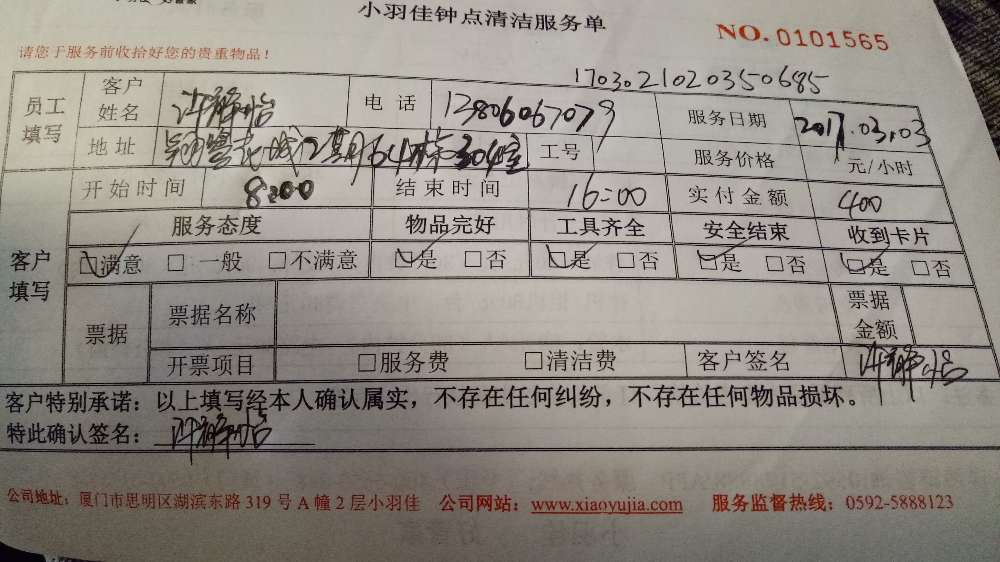 小羽佳钟点清洁服务单
NO. 0101565
请您于服务前收拾好您的贵重物品！
1703021020350685
员工填写 客户姓名 许静怡 电话 12806067079 服务日期 2017.03.03
地址 2期64栋304室 工号 服务价格 元/小时
客户填写 开始时间 8:00 结束时间 16:00 实付金额 400
服务态度 物品完好 工具齐全 安全结束 收到卡片
☑满意 □一般 □不满意 ☑是 □否 ☑是 □否 ☑是 □否 ☑是 □否
票据 票据名称 票据金额
开票项目 □服务费 □清洁费 客户签名 许静怡
客户特别承诺：以上填写经本人确认属实，不存在任何纠纷，不存在任何物品损坏。
特此确认签名：许静怡
公司地址：厦门市思明区湖滨东路 319 号 A 幢 2 层小羽佳 公司网站：www.xiaoyujia.com 服务监督热线：0592-5888123